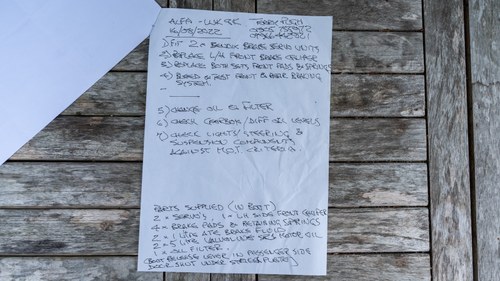 ALFA - 
14/09/2022
1) FIT 2 = BENDIX BRAKE SERVO UNITS
2) REPLACE L/H FRONT BRAKE CALIPER
3) REPLACE BOTH SETS FRONT PADS & SPRINGS
4) BLEED & TEST FRONT & REAR BRAKING
SYSTEM
5) CHANGE OIL & FILTER
6) CHECK GEARBOX/DIFF OIL LEVELS
7) CHECK LIGHTS/STEERING &
SUSPENSION COMPONENTS
AGAINST M.O.T CRITERIA.
PARTS SUPPLIED (IN BOOT)
2 = SERVO'S, 1 = LH SIDE FRONT CALIPER
4 = BRAKE PADS & RETAINING SPRINGS
2 = 1 LITRE ATE BRAKE FLUID
2 = 5 LITRE VALVOLINE MOTOR OIL
1 = OIL FILTER
(BOOT RELEASE LEVER IN PASSENGER SIDE
DOOR SHUT UNDER STRIKER PLATE)